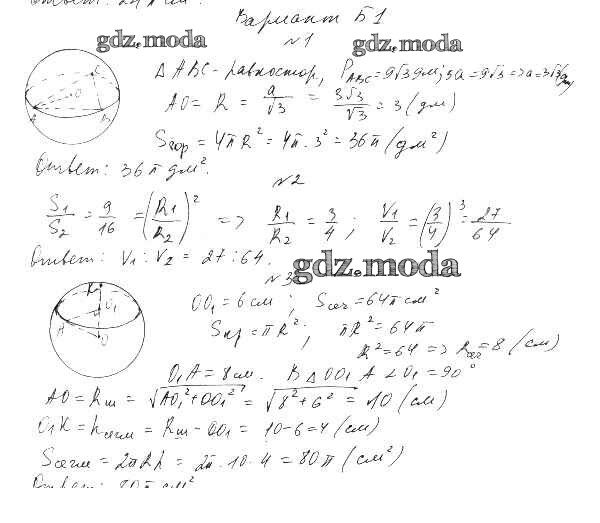 Ответ: 24π см.
Вариант Б1
gdz.moda gdz.moda
№1
Δ ABC - равностор, P ABC = 9√3 дм; 3a = 9√3 => a = 3√3 (дм)
AO = R = a/√3 = 3√3/√3 = 3 (дм)
Sпов = 4πR² = 4π · 3² = 36π (дм²)
Ответ: 36π дм².
№2
S1/S2 = 9/16 = (R1/R2)² => R1/R2 = 3/4; V1/V2 = (3/4)³ = 27/64
Ответ: V1 : V2 = 27 : 64.
gdz.moda
№3
OO1 = 6 см; Sсеч = 64π см²
Sкр = πR²; πR² = 64π
R² = 64 => Rсеч = 8 (см)
O1A = 8 см. В Δ OO1A ∠O1 = 90°
AO = Rш = √AO1² + OO1² = √8² + 6² = 10 (см)
O1K = hсегм = Rш - OO1 = 10 - 6 = 4 (см)
Sсегм = 2πRh = 2π · 10 · 4 = 80π (см²)
Ответ: 80π см²